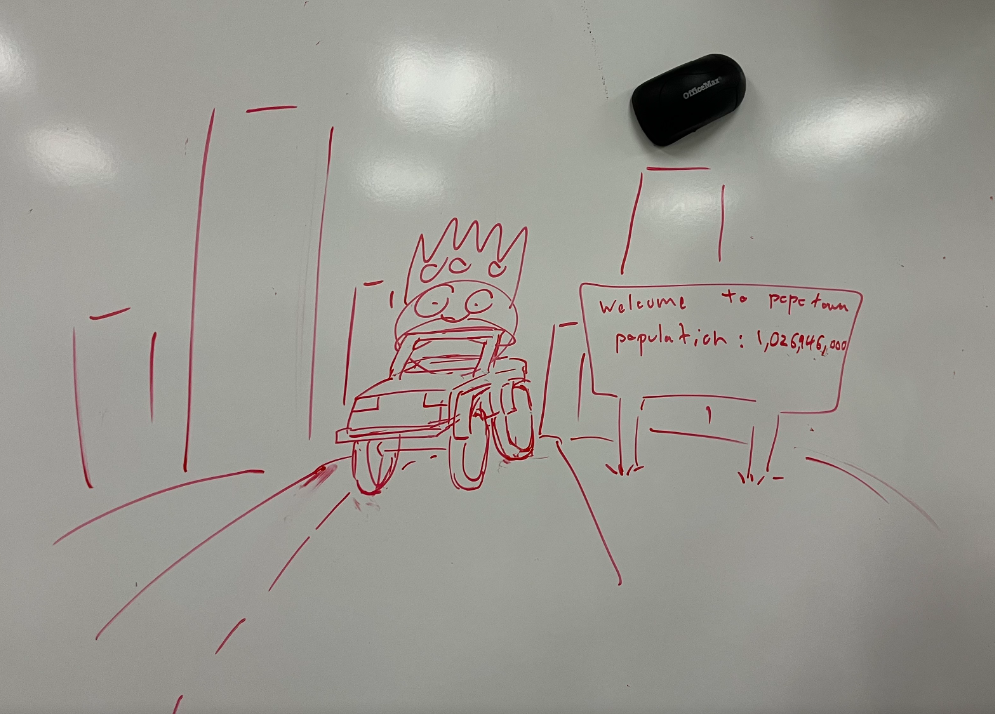 OfficeMax
Welcome to pepetown
population: 1,026,946,000